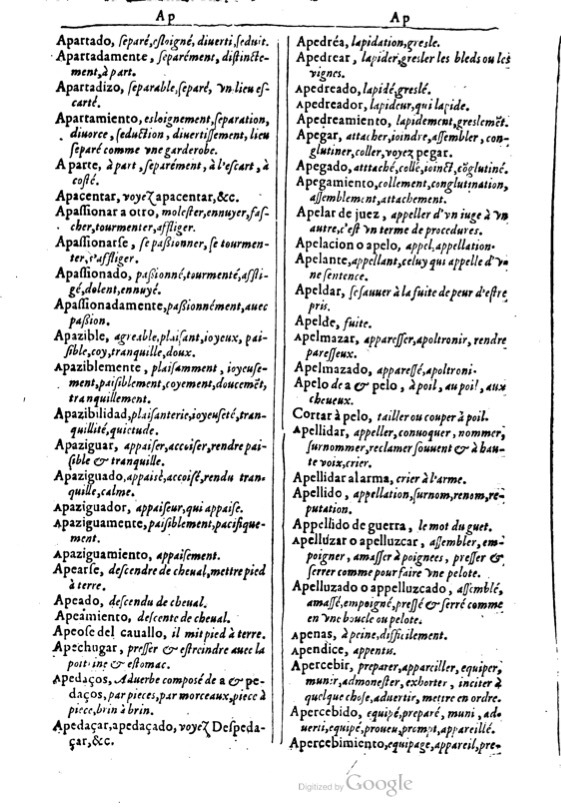 Ap
Apartado, ſeparé, eſloigné, diuerti, ſeduit.
Apartadamente, ſeparément, diſtincte-
ment, à part.
Apartadizo, ſeparable, ſeparé, vn lieu eſ-
carté.
Apartamiento, esloignement, ſeparation,
diuorce, ſeduction, diuertiſſement, lieu
ſeparé comme vne garderobe.
A parte, à part, ſeparément, à l'eſcart, à
coſté.
Apacentar, voyeʒ apacentar, &c.
Apaſſionar a otro, moleſter, ennuyer, faſ-
cher, tourmenter, affliger.
Apaſſionarſe, ſe paßionner, ſe tourmen-
ter, s'affliger.
Apaſſionado, paßionné, tourmenté, affli-
gé, dolent, ennuyé.
Apaſſionadamente, paßionnément, auec
paßion.
Apazible, agreable, plaiſant, ioyeux, pai-
ſible, coy, tranquille, doux.
Apaziblemente, plaiſamment, ioyeuſe-
ment, paiſiblement, coyement, doucemẽt,
tranquillement.
Apazibilidad, plaiſanterie, ioyeuſeté, tran-
quillité, quietude.
Apaziguar, appaiſer, accoiſer, rendre pai-
ſible & tranquille.
Apaziguado, appaiſé, accoiſé, rendu tran-
quille, calme.
Apaziguador, appaiſeur, qui appaiſe.
Apaziguamente, paiſiblement, pacifique-
ment.
Apaziguamiento, appaiſement.
Apearſe, deſcendre de cheual, mettre pied
à terre.
Apeado, deſcendu de cheual.
Apeamiento, deſcente de cheual.
Apeoſe del cauallo, il mit pied à terre.
Apechugar, preſſer & eſtreindre auec la
poitrine & eſtomac.
Apedaços, Aduerbe compoſé de a & pe-
daços, par pieces, par morceaux, piece à
piece, brin à brin.
Apedaçar, apedaçado, voyeʒ Deſpeda-
çar, &c.
Ap
Apedréa, lapidation, greſle.
Apedrear, lapider, greſler les bleds ou les
vignes.
Apedreado, lapidé, greſlé.
Apedreador, lapideur, qui lapide.
Apedreamiento, lapidement, greſlemẽt.
Apegar, attacher, ioindre, aſſembler, con-
glutiner, coller, voyez pegar.
Apegado, atttaché, collé, ioinct, cõglutiné.
Apegamiento, collement, conglutination,
aſſemblement, attachement.
Apelar de juez, appeller d'vn iuge à vn
autre, c'eſt vn terme de procedures.
Apelacion o apelo, appel, appellation.
Apelante, appellant, celuy qui appelle d'v-
ne ſentence.
Apeldar, ſe ſauuer à la fuite de peur d'eſtre
pris.
Apelde, fuite.
Apelmazar, appareſſer, apoltronir, rendre
pareſſeux.
Apelmazado, appareſſé, apoltroni.
Apelo de a & pelo, à poil, au poil, aux
cheueux.
Cortar à pelo, tailler ou couper à poil.
Apellidar, appeller, conuoquer, nommer,
ſurnommer, reclamer ſouuent & à hau-
te voix, crier.
Apellidar al arma, crier à l'arme.
Apellido, appellation, ſurnom, renom, re-
putation.
Appellido de guerra, le mot du guet.
Apelluzar o apelluzcar, aſſembler, em-
poigner, amaſſer à poignees, preſſer &
ſerrer comme pour faire vne pelote.
Apelluzado o appelluzcado, aſſemblé,
amaſſé, empoigné, preſſé & ſerré comme
en vne boucle ou pelote.
Apenas, à peine, difficilement.
Apendice, appentis.
Apercebir, preparer, appareiller, equiper,
munir, admoneſter, exhorter, inciter à
quelque choſe, aduertir, mettre en ordre.
Apercebido, equipé, preparé, muni, ad-
uerti, equipé, proueu, prompt, appareillé.
Apercebimiento, equipage, appareil, pre-
Digitized by Google